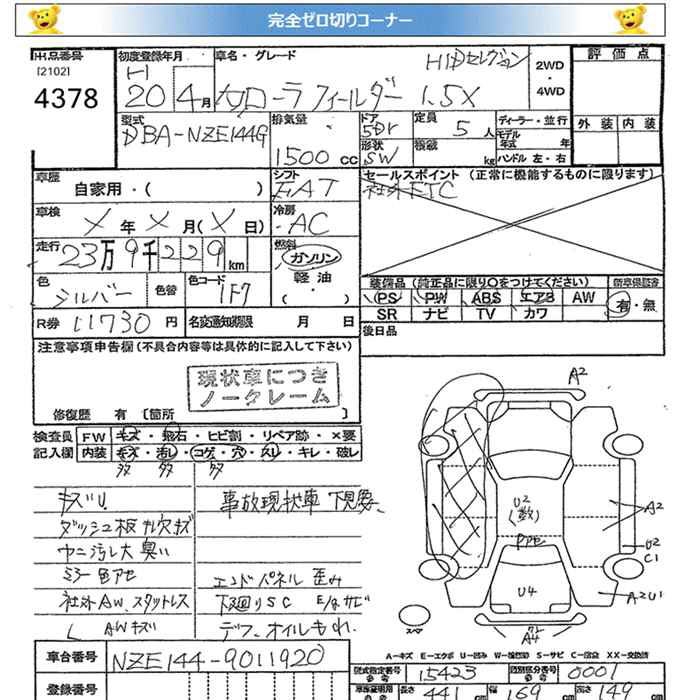 完全ゼロ切りコーナー
出品番号
[2102]
4378
初度登録年月
H
20 4月
車名・グレード
HIDセレクション
カローラフィールダー 1.5X
2WD
・
4WD
評価点
外装 内装
型式
DBA-NZE144G
排気量
1500 cc
ドア
5Dr
形状
SW
定員
5 人
積載
kg
ディーラー・並行
モデル
年式 年
ハンドル 左・右
車歴
自家用・( )
シフト
FAT
セールスポイント (正常に機能するものに限ります)
社外ETC
車検
X 年 X 月(X 日)
冷房
AC
走行
23万9千229km
燃料
ガソリン
軽油
( ・ )
色
シルバー
色替
色コード
1F7
装備品 (純正品に限り○をつけてください)
新車保証書
PS PW ABS エアB AW
SR ナビ TV カワ
有・無
R券 11730 円
名変通知期限 月 日
後日品
注意事項申告欄 (不具合内容等は具体的に記入して下さい)
現状車につき
ノークレーム
修復歴 有 〔箇所 〕
検査員
記入欄
FW キズ・飛石・ヒビ割・リペア跡・×要
内装 キズ・汚し・コゲ・穴・スレ・キレ・破レ
多 多 多
キズU.
事故現状車 下見要、
ダッシュ板 ガレ穴 キズ
ウニ汚し大 臭い
ミラー色アセ
エンドパネル 歪み
社外AW、スタットレス
下廻りSC E/gサビ
AWキズ
デフ、オイルもれ.
A2
U2
(数)
アセ
U4
A2
U2
C1
A2U1
A4
スペア
A-キズ E-エクボ U-凹み W-補修跡 S-サビ C-腐蝕 XX-交換済
車台番号
NZE144-9011920
型式指定番号
15423
類別区分番号
0001
登録番号
長さ
441 cm
幅
169 cm
高さ
149 cm